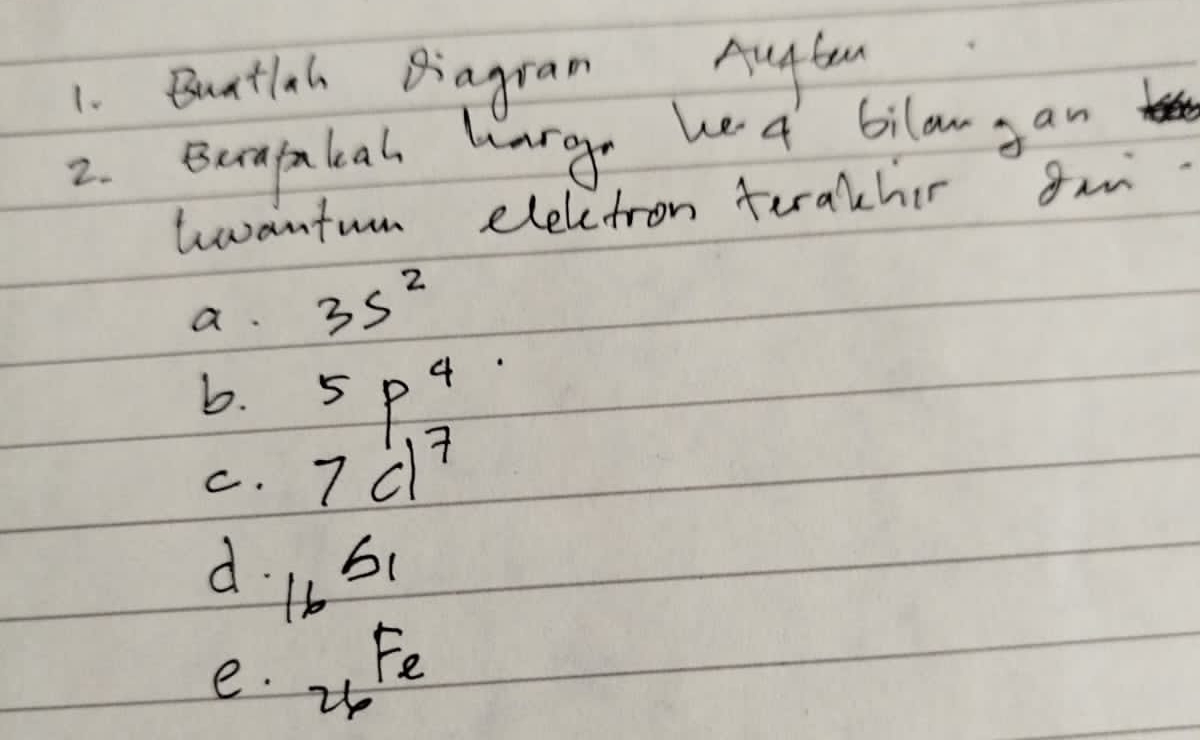 1. Buatlah Diagram Aufbau
2. Berapakah harga ke 4 bilangan
kwantum elektron terakhir dari
a. 3s²
b. 5p⁴
c. 7d⁷
d. ₁₆Si
e. ₂₆Fe